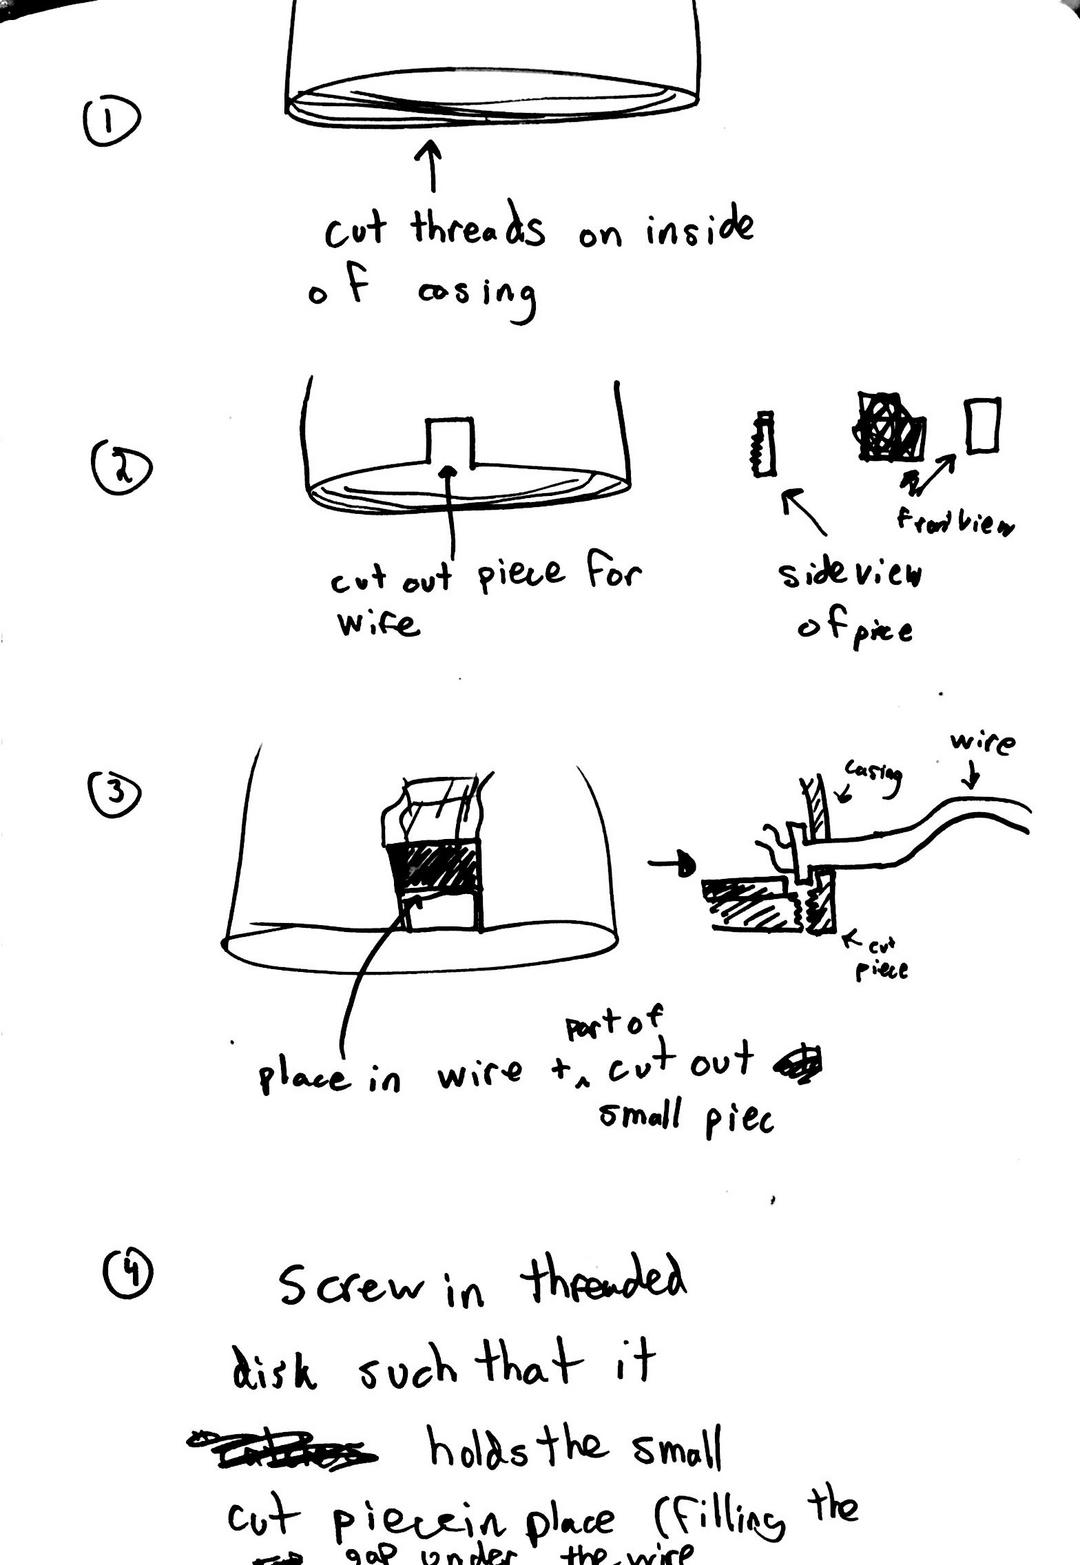 1
cut threads on inside
of casing
2
front view
cut out piece for
wife
side view
of piece
3
wire
casing
cut
piece
part of
place in wire + ^ cut out
small piec
4
Screw in threaded
disk such that it
holds the small
cut piece in place (filling the
gap under the wire